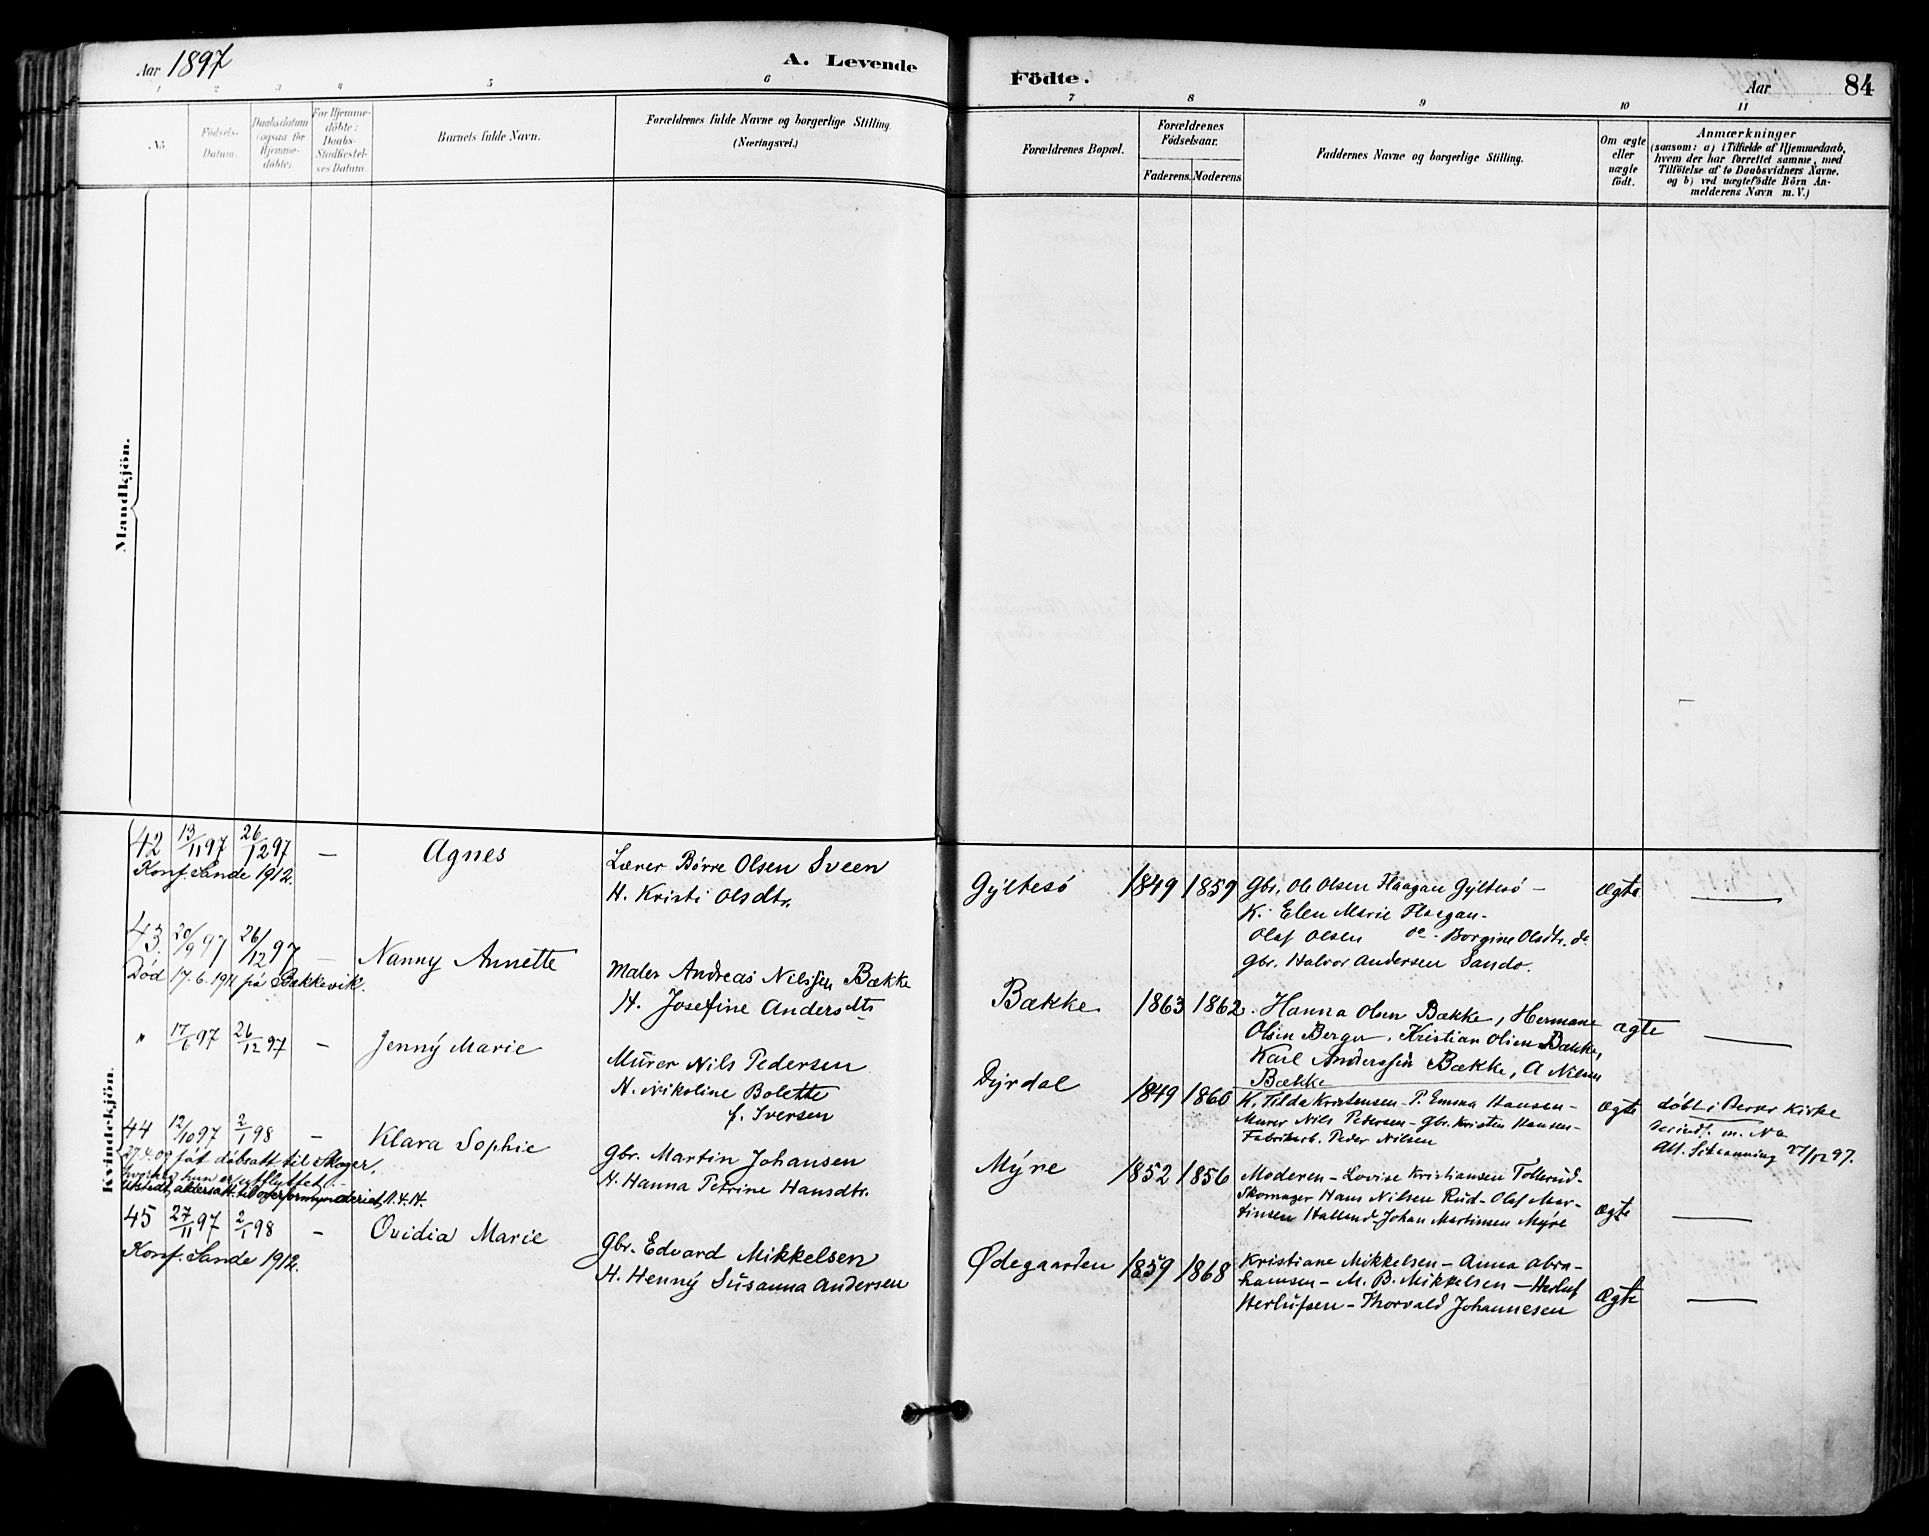 Aar 1897
A. Levende
Födte.
Aar
84
1 2 3 4 5 6 7 8 9 10 11
No.
Födsels-
Datum.
Daabsdatum
(ogsaa for
Hjemme-
döbte).
For Hjemme-
döbte:
Daabs-
Stadfæstel-
ses Datum.
Barnets fulde Navn.
Forældrenes fulde Navne og borgerlige Stilling.
(Næringsvei.)
Forældrenes Bopæl.
Forældrenes
Födselsaar.
Faderens. Moderens.
Faddernes Navne og borgerlige Stilling.
Om ægte
eller
uægte
födt.
Anmærkninger
(saasom: a) i Tilfælde af Hjemmedaab,
hvem der har forrettet samme, med
Tilföielse af to Daabsvidners Navne,
og b) ved uægtefödte Börn An-
melderens Navn m. V.)
Mandkjön.
Kvindekjön.
42 13/11 97 26/12 97 — Agnes
Konf. Sande 1912.
Lærer Børre Olsen Sveen
H. Kristi Olsdtr.
Gyltesö 1849 1859
Gbr. Ole Olsen Haagan Gyltesö —
K. Elen Marie Haagan -
Olaf Olsen do - Borgine Olsdtr. do
Gbr. Halvor Andersen Sando.
Ægte —
43 20/9 97 26/12 97 — Nanny Annette
Död 17.6.1911 på Bækkevik.
Maler Andreas Nilssen Bække
H. Josefine Andersdtr
Bække 1863 1862
Hanna Olsen Bække, Hermane
Olsen Berger, Kristian Olsen Bække,
Karl Anderssen Bække, A Nilsen
Bække
ægte —
" 17/6 97 26/12 97 — Jenny Marie
Murer Nils Pedersen
H. Nikoline Bolette
f. Iversen
Dyrdal 1849 1860
K. Tilda Kristensen - P. Emma Hansen -
Murer Nils Petersen - Gbr. Kristen Hansen -
Fabrikarb. Peder Nilsen
Ægte
döbt i Berer Kirke
m. No
Att. 27/12 97.
44 12/10 97 2/1 98 — Klara Sophie
27.4.09 fåt döbsatt til Skoger,
hvorhen hun er utflyttet.
Utstedt aldersatt. til overformynderiet 11.4.14.
Gbr. Martin Johansen
H. Hanna Petrine Hansdtr.
Myre 1852 1856
Moderen - Lovise Kristiansen Tollerud -
Skomager Hans Nilsen Rud - Olaf Mar-
tinsen Halland - Johan Martinsen Myre
Ægte —
45 27/11 97 2/1 98 - Ovidia Marie
Konf. Sande 1912.
Gbr. Edvard Mikkelsen
H. Henny Susanna Andersen
Ødegaarden 1859 1868
Kristiane Mikkelsen - Anna Abra-
hamsen - M. B. Mikkelsen - Herluf
Herlufsen - Thorvald Johannesen
Ægte —